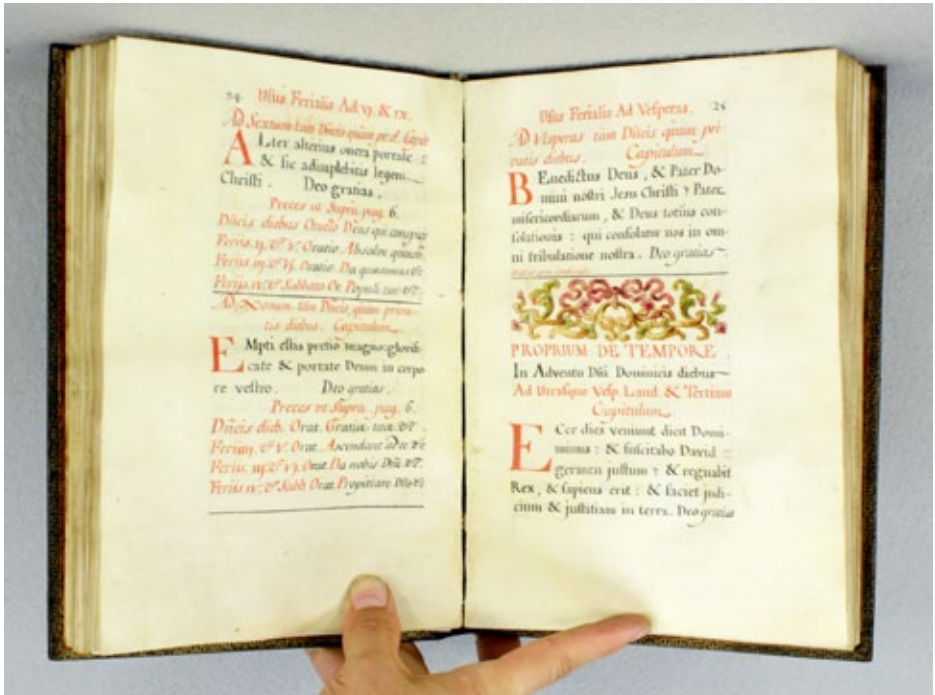 24 Usus Ferialis Ad vj. & ix.
Ad Sextam tam Dñicis quam pr. d. Capit
ALter alterius onera portate :
& sic adimplebitis legem
Christi. Deo gratias.
Preces ut Supra pag. 6.
Dñicis diebus Oratio Deus qui conspicis
Ferijs. ij. & V. Oratio Absolve quæsum.
Ferijs. iij. & Vj. Oratio. Da quæsumus &c
Ferijs. iv. & Sabbato Or. Populi tui &c.
Ad Nonam. tam Dñicis, quam priva-
tis diebus. Capitulum
EMpti estis pretio magno: glorifi-
cate & portate Deum in corpo
re vestro. Deo gratias.
Preces ut Supra. pag. 6.
Dñicis dieb. Orat. Gratiæ tuæ &c.
Ferijs ij. & V. Orat. Ascendant ad te &c
Ferijs. iij. & Vj. Orat. Da nobis Dñe &c.
Ferijs iv. & Sabb. Orat. Propitiare Dñe &c
Usus Ferialis Ad Vesperas. 25
Ad Vesperas tam Dñicis quam pri-
vatis diebus. Capitulum
BEnedictus Deus, & Pater Do-
mini nostri Jesu Christi, Pater
misericordiarum, & Deus totius con-
solationis : qui consolatur nos in om-
ni tribulatione nostra. Deo gratias
PROPRIUM DE TEMPORE.
In Adventu Dñi Dominicis diebus
Ad Utrasque Vesp. Laud. & Tertiam
Capitulum
ECce dies veniunt dicit Domi-
minus : & suscitabo David
germen justum : & regnabit
Rex, & sapiens erit : & faciet judi-
cium & justitiam in terra. Deo gratias